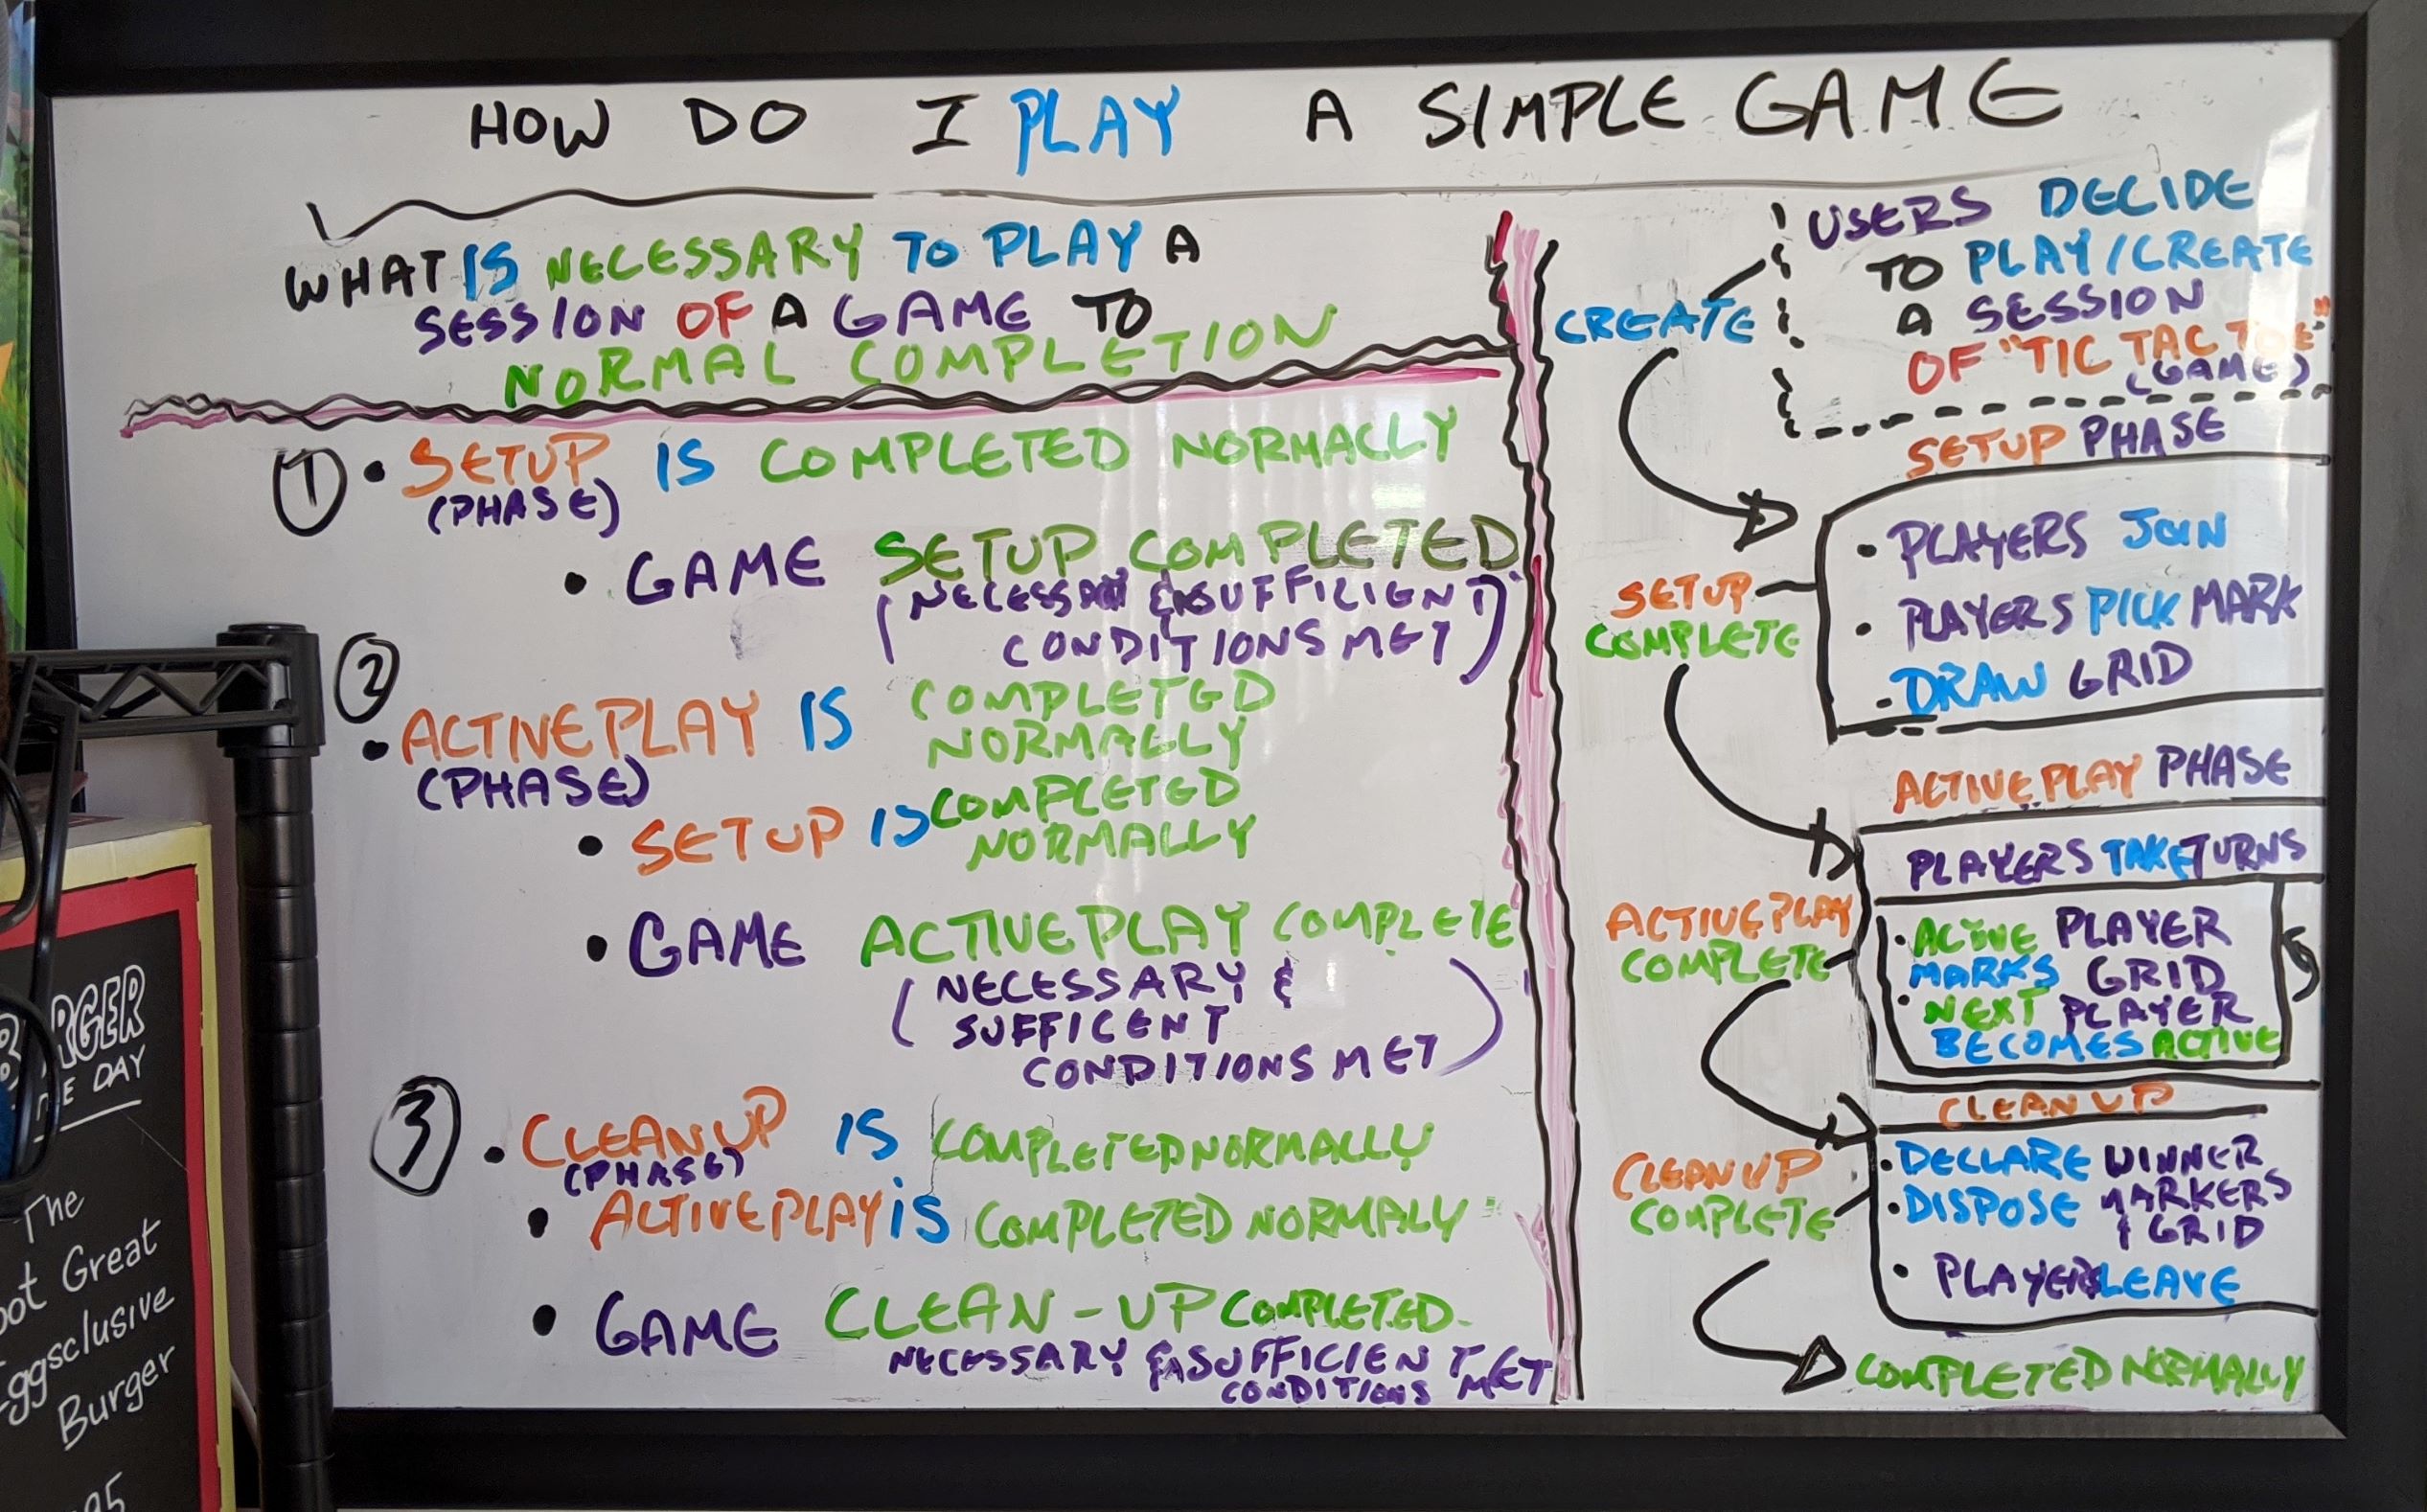 HOW DO I PLAY A SIMPLE GAME
WHAT IS NECESSARY TO PLAY A
SESSION OF A GAME TO
NORMAL COMPLETION
1 • SETUP IS COMPLETED NORMALLY
(PHASE)
• GAME SETUP COMPLETED
(NECESSARY & SUFFICIENT
CONDITIONS MET)
2
• ACTIVE PLAY IS COMPLETED
NORMALLY
(PHASE)
• SETUP IS COMPLETED
NORMALLY
• GAME ACTIVE PLAY COMPLETE
(NECESSARY &
SUFFICENT
CONDITIONS MET)
3 • CLEANUP IS COMPLETED NORMALLY
(PHASE)
• ACTIVE PLAY IS COMPLETED NORMALY
• GAME CLEAN-UP COMPLETED
NECESSARY & SUFFICIENT MET
CONDITIONS
USERS DECIDE
TO PLAY/CREATE
A SESSION
OF "TIC TAC TOE"
(GAME)
CREATE
SETUP PHASE
• PLAYERS JOIN
• PLAYERS PICK MARK
• DRAW GRID
SETUP
COMPLETE
ACTIVE PLAY PHASE
PLAYERS TAKE TURNS
• ACTIVE PLAYER
MARKS GRID
• NEXT PLAYER
BECOMES ACTIVE
ACTIVE PLAY
COMPLETE
CLEAN UP
• DECLARE WINNER
• DISPOSE MARKERS
& GRID
• PLAYERS LEAVE
CLEAN UP
COMPLETE
COMPLETED NORMALLY
DAY
The
Great
Eggsclusive
Burger